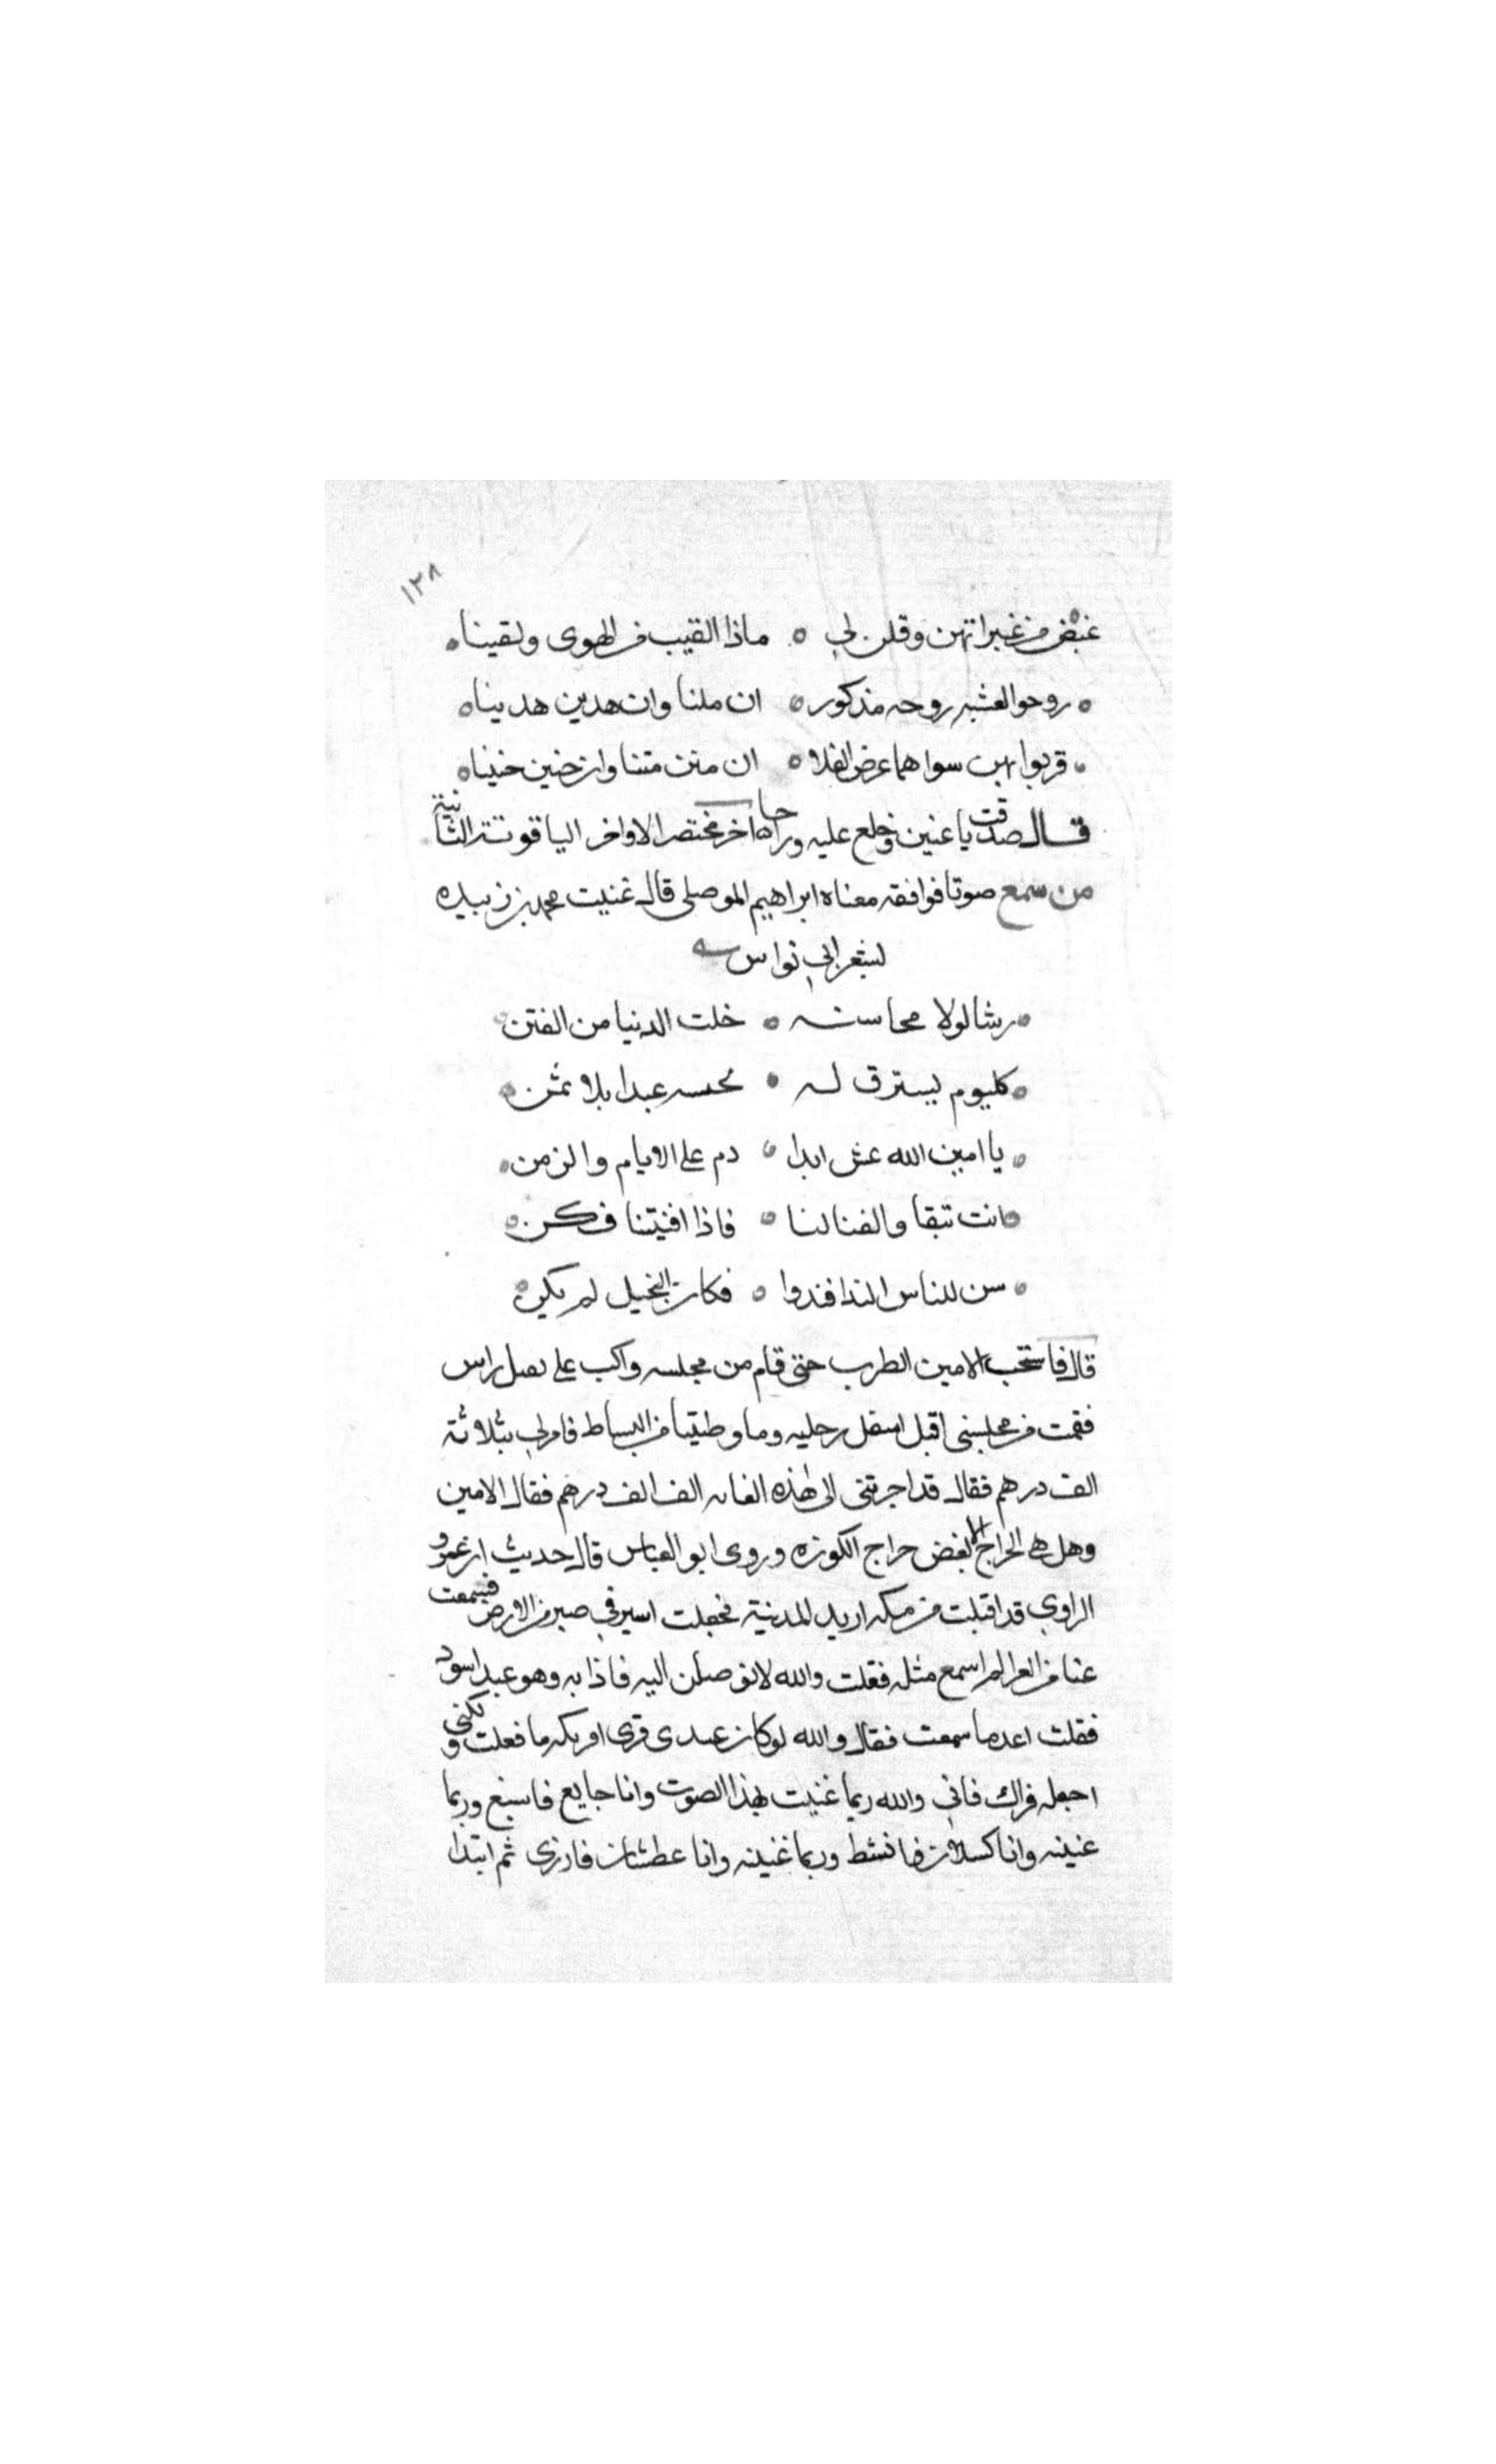 ١٢٨
غيض من غبراتهن وقلن لي ه ماذا القيت من الهوى ولقيناه
ه روحوا العشيه روحه مذكوره ان ملنا وان هدين هديناه
ه قربوا بهن سواهما عرض الفلاه ان متن متنا وان حنين حنيناه
قال صدقت يا عنين وخلع عليه وراحا اخر مختصر الاواخر الياقوتة الثانية
من سمع صوتا فوافقه معناه ابراهيم الموصلي قال غنيت محمد بن زبيده
لشعر ابي نواس
ه رشا لولا محاسنه ه خلت الدنيا من الفتن
ه كليوم يسترق له ه محسه عبدا بلا ثمن ه
ه يا امين الله عش ابدا ه دم على الايام والزمن ه
ه انت تبقا والفنا لنا ه فاذا افنيتنا فكن ه
ه سن للناس الندا فندوا ه فكان البخيل لم يكن ه
قال فاستحب الامين الطرب حتى قام من مجلسه واكب على راس
فقمت من مجلسي اقبل اسفل رجليه وما وطيتا من البساط فامر لي بثلاثة
الف درهم فقال قد اجرتني الى هذه الغايه الف الف درهم فقال الامين
وهل هي الخراج الا بغض خراج الكوره وروى ابو العباس قال حديث ان عمرو
الراوي قد اقبلت من مكه اريد المدينة فجعلت اسير في صبر من الارض فسمعت
عنا من العرا لم اسمع مثله فقلت والله لاتوصلن اليه فاذا به وهو عبد اسود
فقلت اعد ما سمعت فقال والله لو كان عندي قرى اقريكه ما فعلت ولكني
اجعله قراك فاني والله ربما غنيت بهذا الصوت وانا جايع فاسبغ وربما
غنيته وانا كسلان فانشط وربما غنيته وانا عطشان فاروى ثم ابتدا